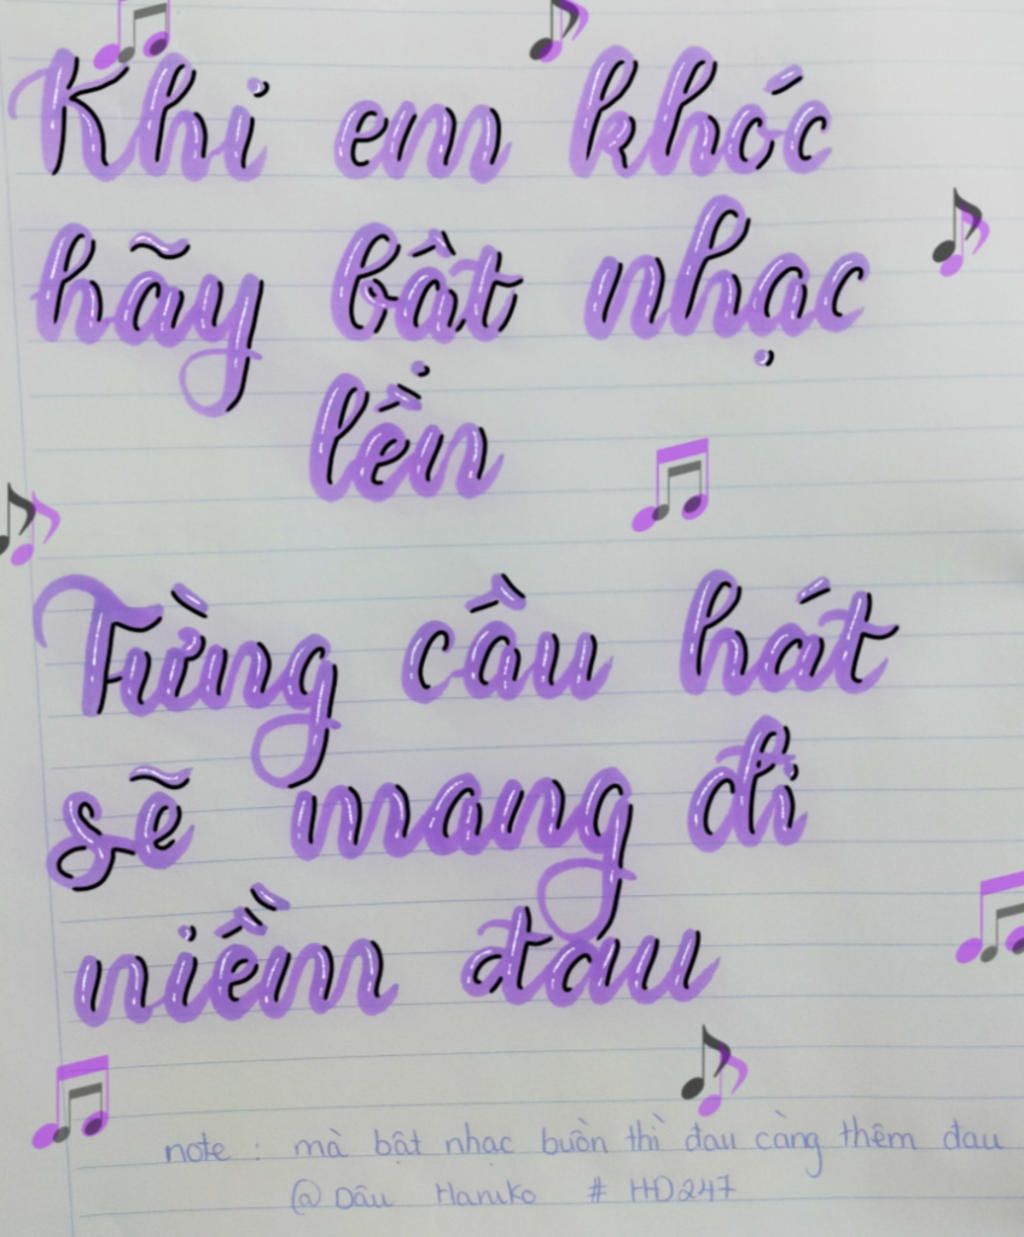 Khi em khóc
hãy bật nhạc
lên
Từng câu hát
sẽ mang đi
niềm đau
note : mà bật nhạc buồn thì đau càng thêm đau
@ Dâu Haniko # HD247